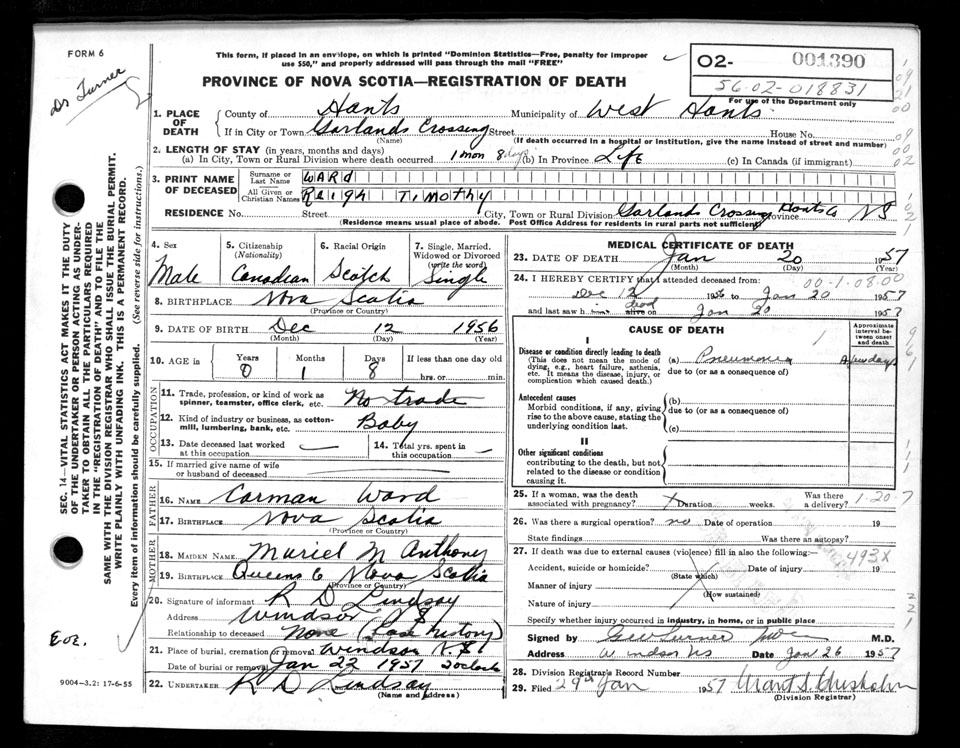 FORM 6
Dr Turner
This form, if placed in an envelope, on which is printed "Dominion Statistics—Free, penalty for improper
use $50," and properly addressed will pass through the mail "FREE"
PROVINCE OF NOVA SCOTIA—REGISTRATION OF DEATH
O2- 001390
56-02-018831
For use of the Department only
1. PLACE OF DEATH
County of Hants Municipality of West Hants
If in City or Town Garlands Crossing Street House No.
(Name) (If death occurred in a hospital or institution, give the name instead of street and number)
2. LENGTH OF STAY (in years, months and days)
(a) In City, Town or Rural Division where death occurred 1 mon 8 days (b) In Province Life (c) In Canada (if immigrant)
3. PRINT NAME OF DECEASED
Surname or Last Name WARd
All Given or Christian Names Reigh Timothy
RESIDENCE No. Street City, Town or Rural Division Garlands Crossing Hants Co Province NS
(Residence means usual place of abode. Post Office Address for residents in rural parts not sufficient)
4. Sex Male
5. Citizenship (Nationality) Canadian
6. Racial Origin Scotch
7. Single, Married, Widowed or Divorced (write the word) Single
8. BIRTHPLACE Nova Scotia
(Province or Country)
9. DATE OF BIRTH Dec 12 1956
(Month) (Day) (Year)
10. AGE in Years Months Days If less than one day old
0 1 8 hrs. or min.
OCCUPATION
11. Trade, profession, or kind of work as spinner, teamster, office clerk, etc. No trade
12. Kind of industry or business, as cotton-mill, lumbering, bank, etc. Baby
13. Date deceased last worked at this occupation —
14. Total yrs. spent in this occupation —
15. If married give name of wife or husband of deceased
FATHER
16. NAME Carman Ward
17. BIRTHPLACE Nova Scotia
(Province or Country)
MOTHER
18. MAIDEN NAME Muriel M Anthony
19. BIRTHPLACE Queens Co Nova Scotia
(Province or Country)
20. Signature of informant R D Lindsay
Address Windsor N S
Relationship to deceased None (Case history)
21. Place of burial, cremation or removal Windsor N.S
Date of burial or removal Jan 22 1957 2 oclock
22. UNDERTAKER R D Lindsay
(Name and address)
MEDICAL CERTIFICATE OF DEATH
23. DATE OF DEATH Jan 20 1957
(Month) (Day) (Year)
24. I HEREBY CERTIFY that I attended deceased from:
00-1-08.00
Dec 12 1956 to Jan 20 1957
and last saw him dead alive on Jan 20 1957
CAUSE OF DEATH
Approximate interval between onset and death
I
Disease or condition directly leading to death
(This does not mean the mode of dying, e.g., heart failure, asthenia, etc. It means the disease, injury, or complication which caused death.)
(a) Pneumonia A few days
due to (or as a consequence of)
Antecedent causes
Morbid conditions, if any, giving rise to the above cause, stating the underlying condition last.
(b)
due to (or as a consequence of)
(c)
II
Other significant conditions
contributing to the death, but not related to the disease or condition causing it.
25. If a woman, was the death associated with pregnancy? Duration weeks. Was there a delivery?
1-20-7
26. Was there a surgical operation? no Date of operation 19
State findings Was there an autopsy?
27. If death was due to external causes (violence) fill in also the following:-
493X
Accident, suicide or homicide? Date of injury 19
(State which)
Manner of injury
(How sustained)
Nature of injury
Specify whether injury occurred in industry, in home, or in public place
Signed by Geo Turner M.D.
Address Windsor NS Date Jan 26 1957
28. Division Registrar's Record Number
29. Filed 29th Jan 1957 Grant S. Chisholm
(Division Registrar)
SEC. 14—VITAL STATISTICS ACT MAKES IT THE DUTY
OF THE UNDERTAKER OR PERSON ACTING AS UNDER-
TAKER TO OBTAIN ALL THE PARTICULARS REQUIRED
IN THE "REGISTRATION OF DEATH" AND TO FILE THE
SAME WITH THE DIVISION REGISTRAR WHO SHALL ISSUE THE BURIAL PERMIT.
WRITE PLAINLY WITH UNFADING INK. THIS IS A PERMANENT RECORD.
Every item of information should be carefully supplied. (See reverse side for instructions).
9004-3.2: 17-6-55